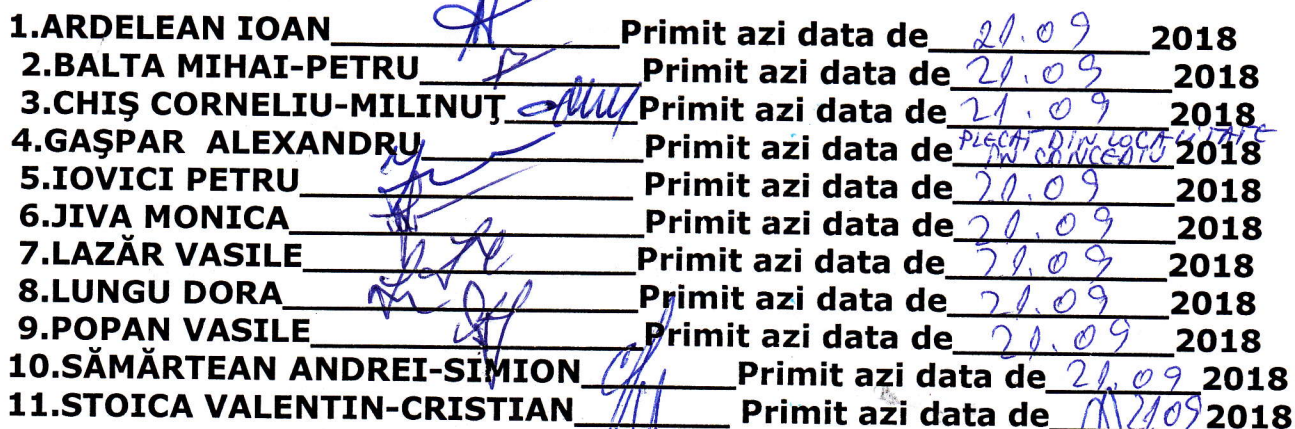 1.ARDELEAN IOAN Primit azi data de 21.09 2018
2.BALTA MIHAI-PETRU Primit azi data de 21.09 2018
3.CHIŞ CORNELIU-MILINUŢ Primit azi data de 21.09 2018
4.GAŞPAR ALEXANDRU Primit azi data de PLECAT DIN LOCALITATE IN CONCEDIU 2018
5.IOVICI PETRU Primit azi data de 21.09 2018
6.JIVA MONICA Primit azi data de 21.09 2018
7.LAZĂR VASILE Primit azi data de 21.09 2018
8.LUNGU DORA Primit azi data de 21.09 2018
9.POPAN VASILE Primit azi data de 21.09 2018
10.SĂMĂRTEAN ANDREI-SIMION Primit azi data de 21.09 2018
11.STOICA VALENTIN-CRISTIAN Primit azi data de 2109 2018